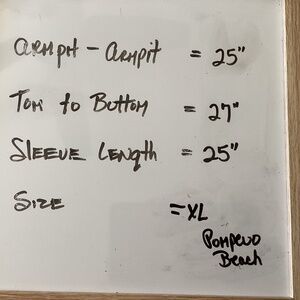 Armpit - Armpit = 25"
Tom to Bottom = 27"
Sleeve Length = 25"
Size = XL
Beach